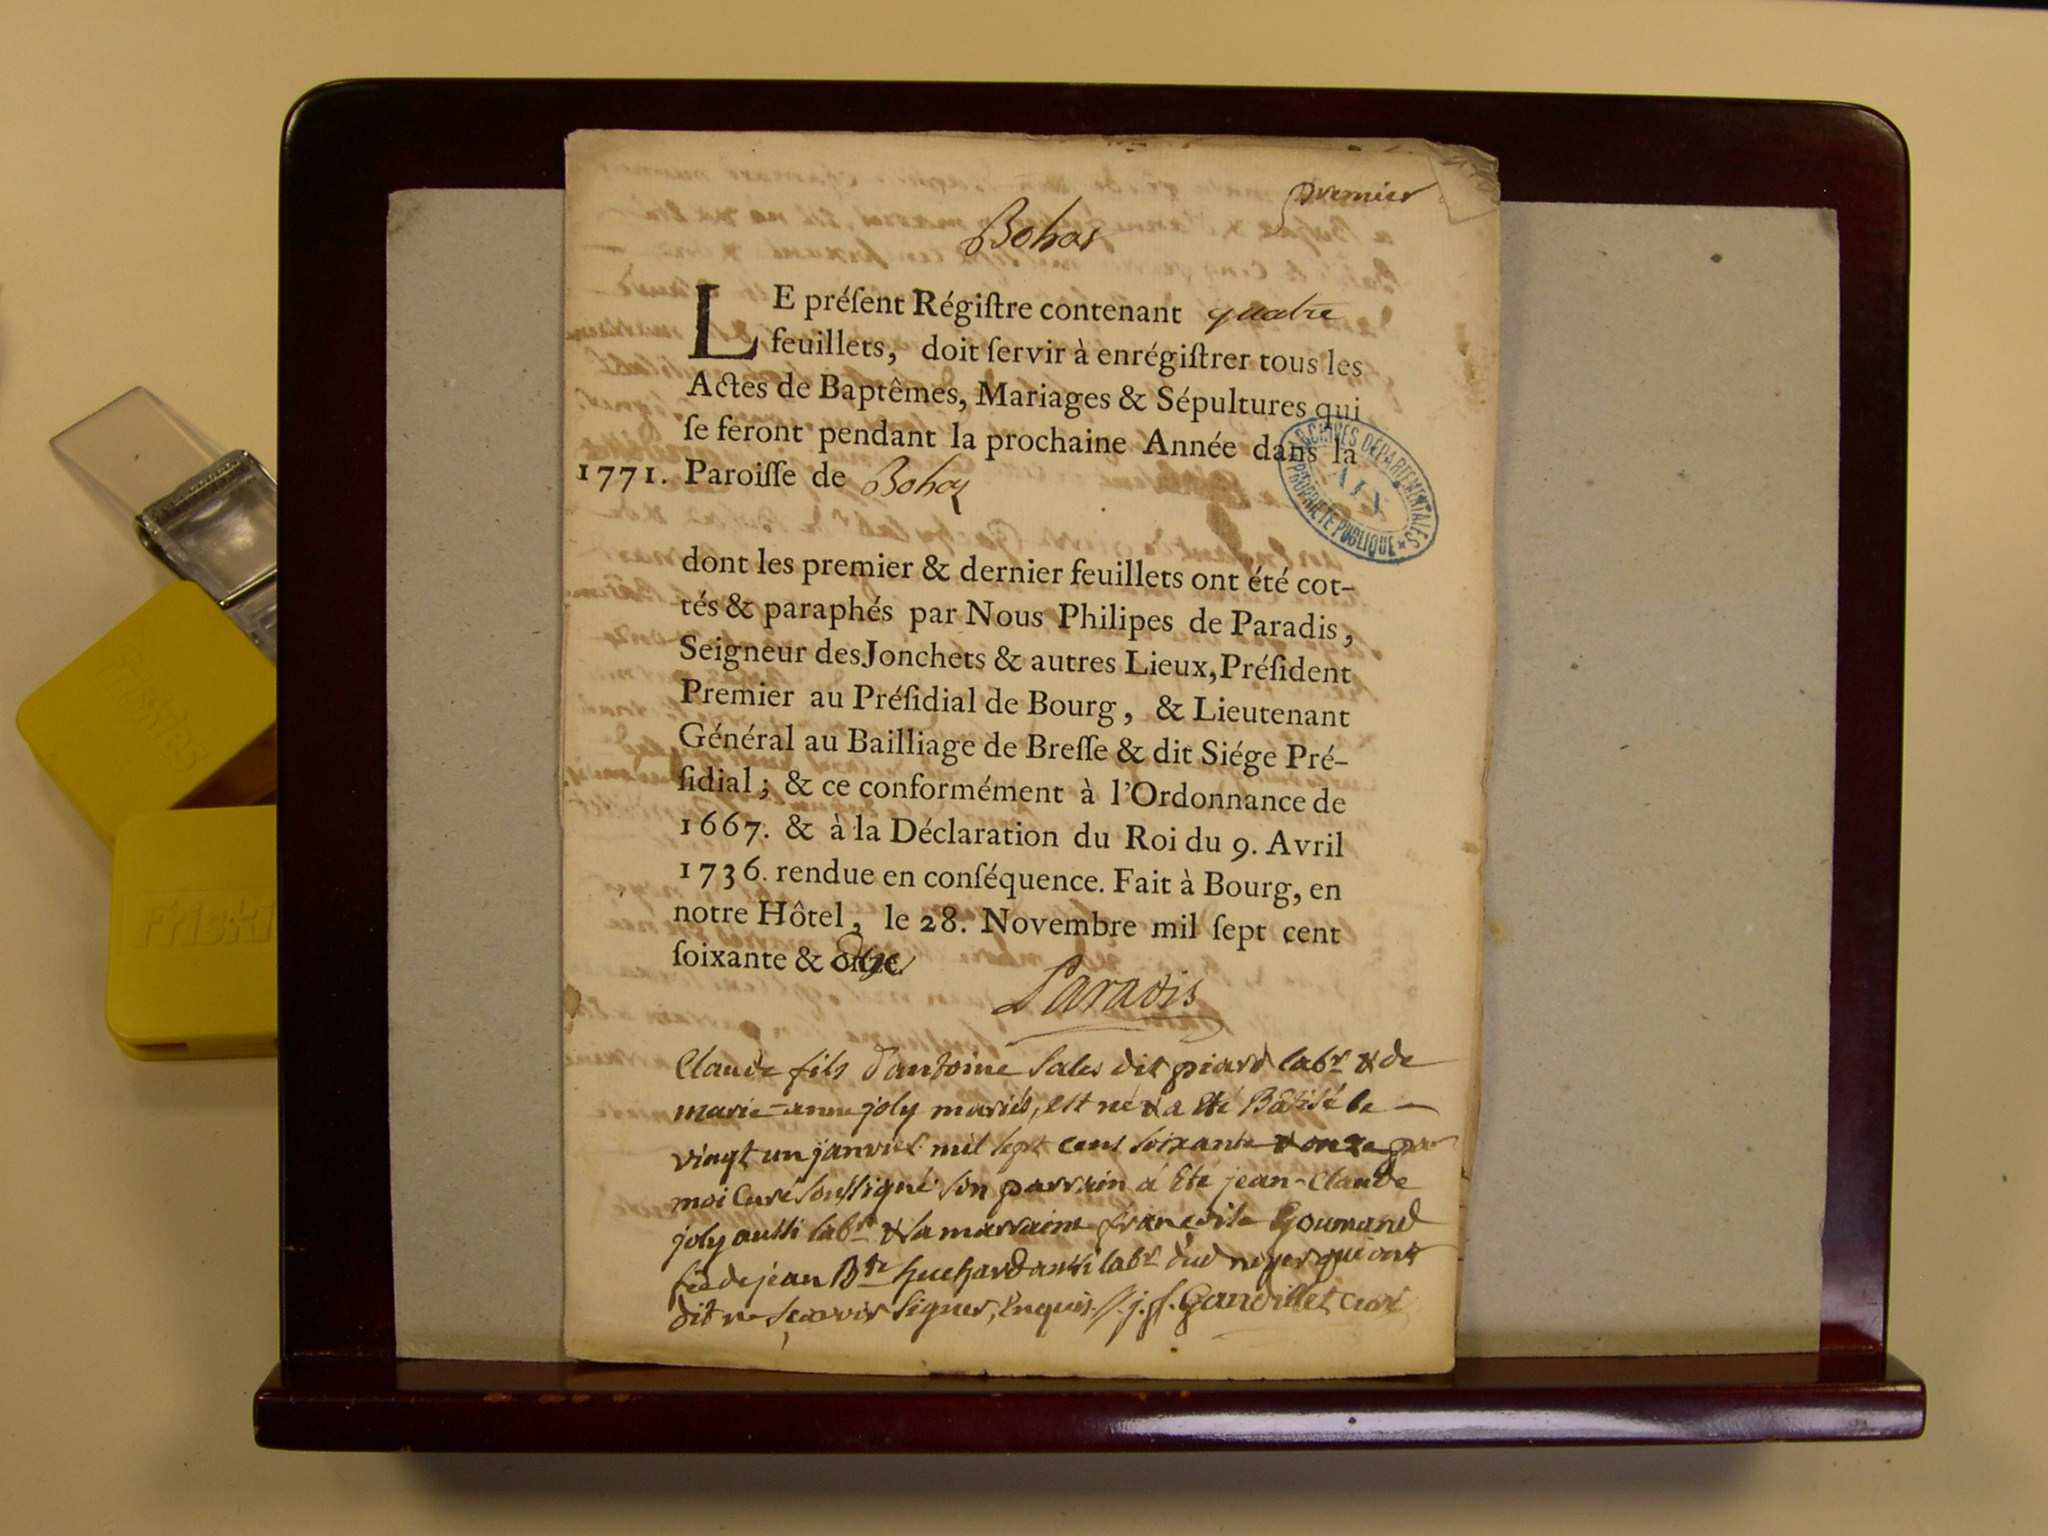 premier
Bohas
LE préſent Régiſtre contenant quatre
feuillets, doit ſervir à enrégiſtrer tous les
Actes de Baptêmes, Mariages & Sépultures qui
ſe feront pendant la prochaine Année dans la
1771. Paroiſſe de Bohas
ARCHIVES DÉPARTEMENTALES
AIN
PROPRIÉTÉ PUBLIQUE
dont les premier & dernier feuillets ont été cot-
tés & paraphés par Nous Philipes de Paradis,
Seigneur des Jonchets & autres Lieux, Préſident
Premier au Préſidial de Bourg, & Lieutenant
Général au Bailliage de Breſſe & dit Siége Pré-
ſidial; & ce conformément à l'Ordonnance de
1667. & à la Déclaration du Roi du 9. Avril
1736. rendue en conſéquence. Fait à Bourg, en
notre Hôtel, le 28. Novembre mil ſept cent
ſoixante &
Paradis
Claude fils d'antoine Sales dit piard labr & de
marie-anne joly mariés, est né & a Eté Batisé le
vingt un janvier mil sept cens soixante & onze par
moi Curé soussigné son parrain á Eté jean-Claude
joly aussi labr & la marraine françoise Goumand
de jean Bte huchard aussi labr dud qui ont
dit ne sçavoir signer, Enquis. j. f. Gandillet curé
Friskies
Friski